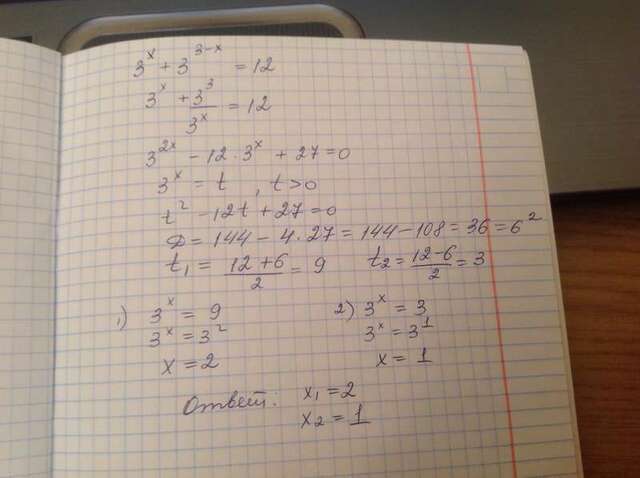 3^x + 3^(3-x) = 12
3^x + 3^3/3^x = 12
3^(2x) - 12 · 3^x + 27 = 0
3^x = t , t > 0
t^2 - 12t + 27 = 0
D = 144 - 4 · 27 = 144 - 108 = 36 = 6^2
t1 = (12+6)/2 = 9 t2 = (12-6)/2 = 3
1) 3^x = 9 2) 3^x = 3
3^x = 3^2 3^x = 3^1
x = 2 x = 1
Ответ: x1 = 2
x2 = 1